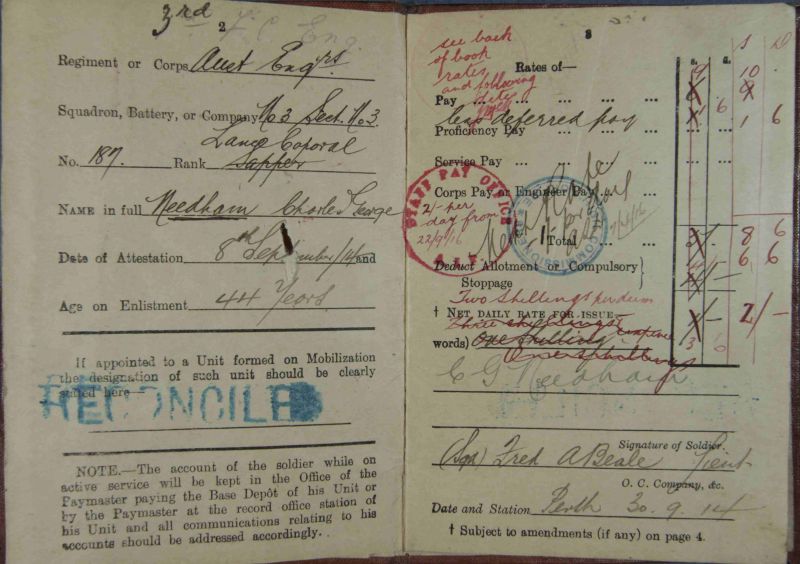 3rd
2
Regiment or Corps Aust Engrs
Squadron, Battery, or Company No 3 Sect. No 3
Lance Coporal
No. 187. Rank Sapper
NAME in full Needham Charles George
Date of Attestation 8th September/14 and
Age on Enlistment 44 Years.
If appointed to a Unit formed on Mobilization
the designation of such unit should be clearly
stated here
RECONCILED
NOTE.—The account of the soldier while on
active service will be kept in the Office of the
Paymaster paying the Base Depôt of his Unit or
by the Paymaster at the record office station of
his Unit and all communications relating to his
accounts should be addressed accordingly.
3
see back
of book
rates
and following
Rates of—
s. d.
10
Pay ... ... ... ... ...
less deferred pay 1 6
Proficiency Pay ... ... ...
Service Pay ... ... ...
Corps Pay or Engineer Pay ...
STAFF PAY OFFICE
A.I.F.
2/- per
day from
22/9/16
Total ... 8 6
Deduct Allotment or Compulsory
Stoppage 6 6
Two Shillings per diem
† NET DAILY RATE FOR ISSUE 2/-
Three shillings
words) One shilling
One shillings
C G Needham
Signature of Soldier.
(Sgd) Fred A Beale Lieut
O. C. Company, &c.
Date and Station Perth 30.9.14
† Subject to amendments (if any) on page 4.